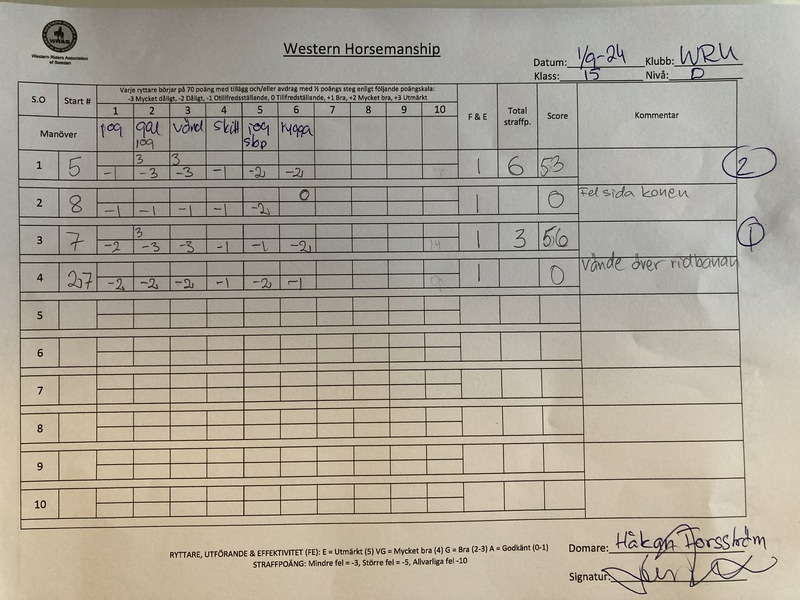 WRAS
Western Riders Association
of Sweden
Western Horsemanship
Datum: 1/9-24 Klubb: WRU
Klass: 15 Nivå: D
S.O Start # Varje ryttare börjar på 70 poäng med tillägg och/eller avdrag med ½ poängs steg enligt följande poängskala:
-3 Mycket dåligt, -2 Dåligt, -1 Otillfredsställande, 0 Tillfredställande, +1 Bra, +2 Mycket bra, +3 Utmärkt
1 2 3 4 5 6 7 8 9 10 F & E Total straffp. Score Kommentar
Manöver jog gal jog vänd skritt jog sbp rygga
3 3
1 5 -1 -3 -3 -1 -2 -2 1 6 53 2
0
2 8 -1 -1 -1 -1 -2 1 0 Fel sida konen
3
3 7 -2 -3 -3 -1 -1 -2 14 1 3 56 1
4 27 -2 -2 -2 -1 -2 -1 1 0 Vände över ridbanan
5
6
7
8
9
10
RYTTARE, UTFÖRANDE & EFFEKTIVITET (FE): E = Utmärkt (5) VG = Mycket bra (4) G = Bra (2-3) A = Godkänt (0-1)
STRAFFPOÄNG: Mindre fel = -3, Större fel = -5, Allvarliga fel -10
Domare: Håkan Forsström
Signatur: